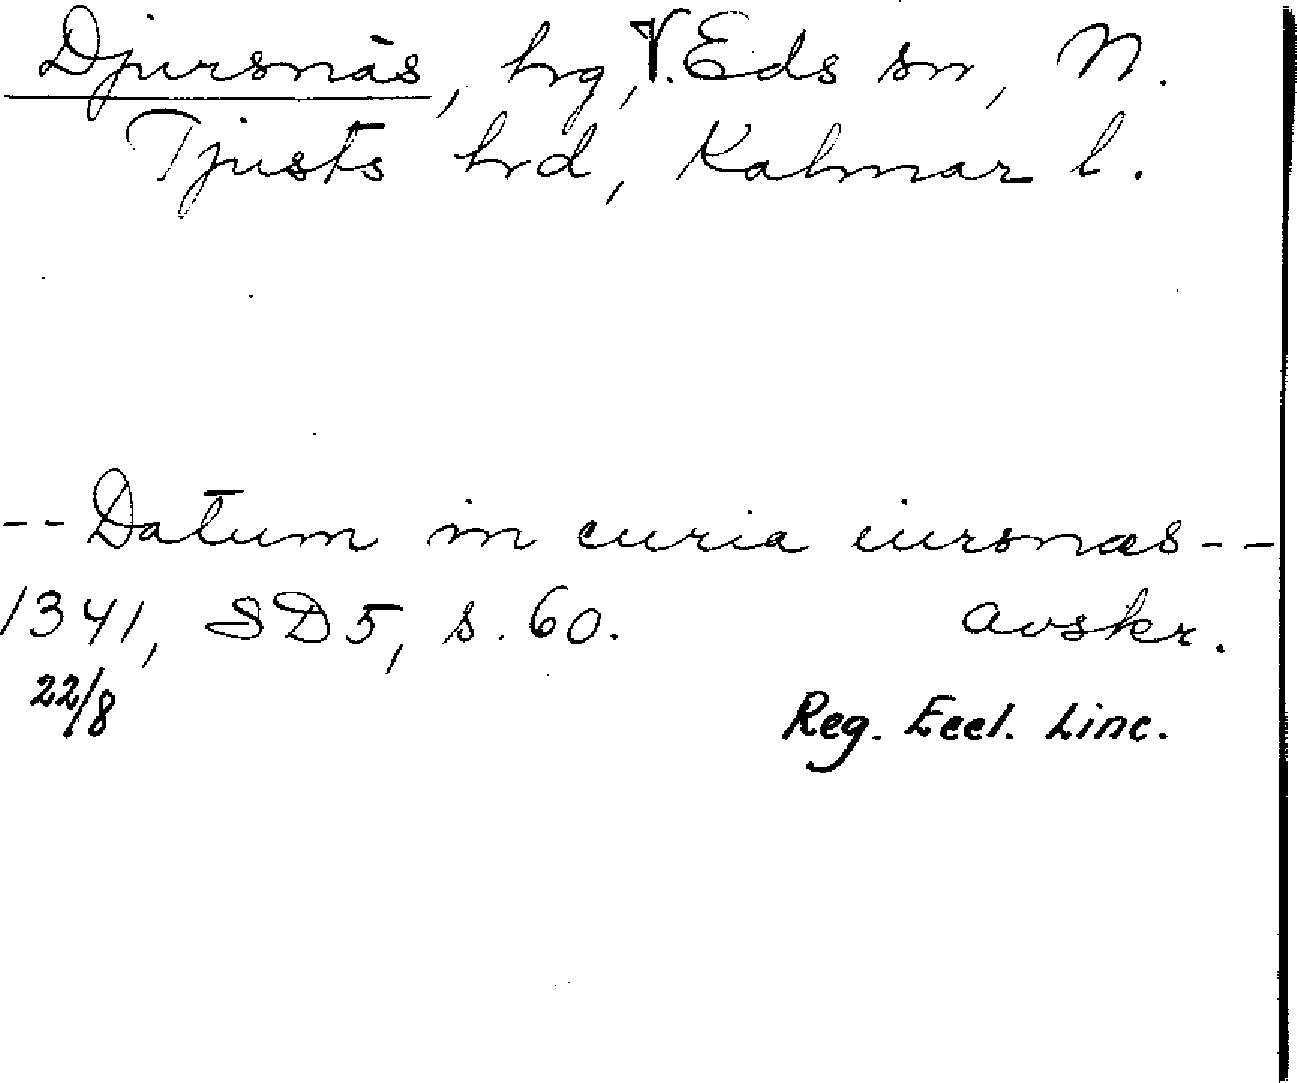 Djursnäs, hrg, V. Eds sn, N.
Tjusts hrd, Kalmar l.
-- Datum in curia iursnæs --
1341, SD 5, s. 60. avskr.
22/8 Reg. Eccl. Linc.